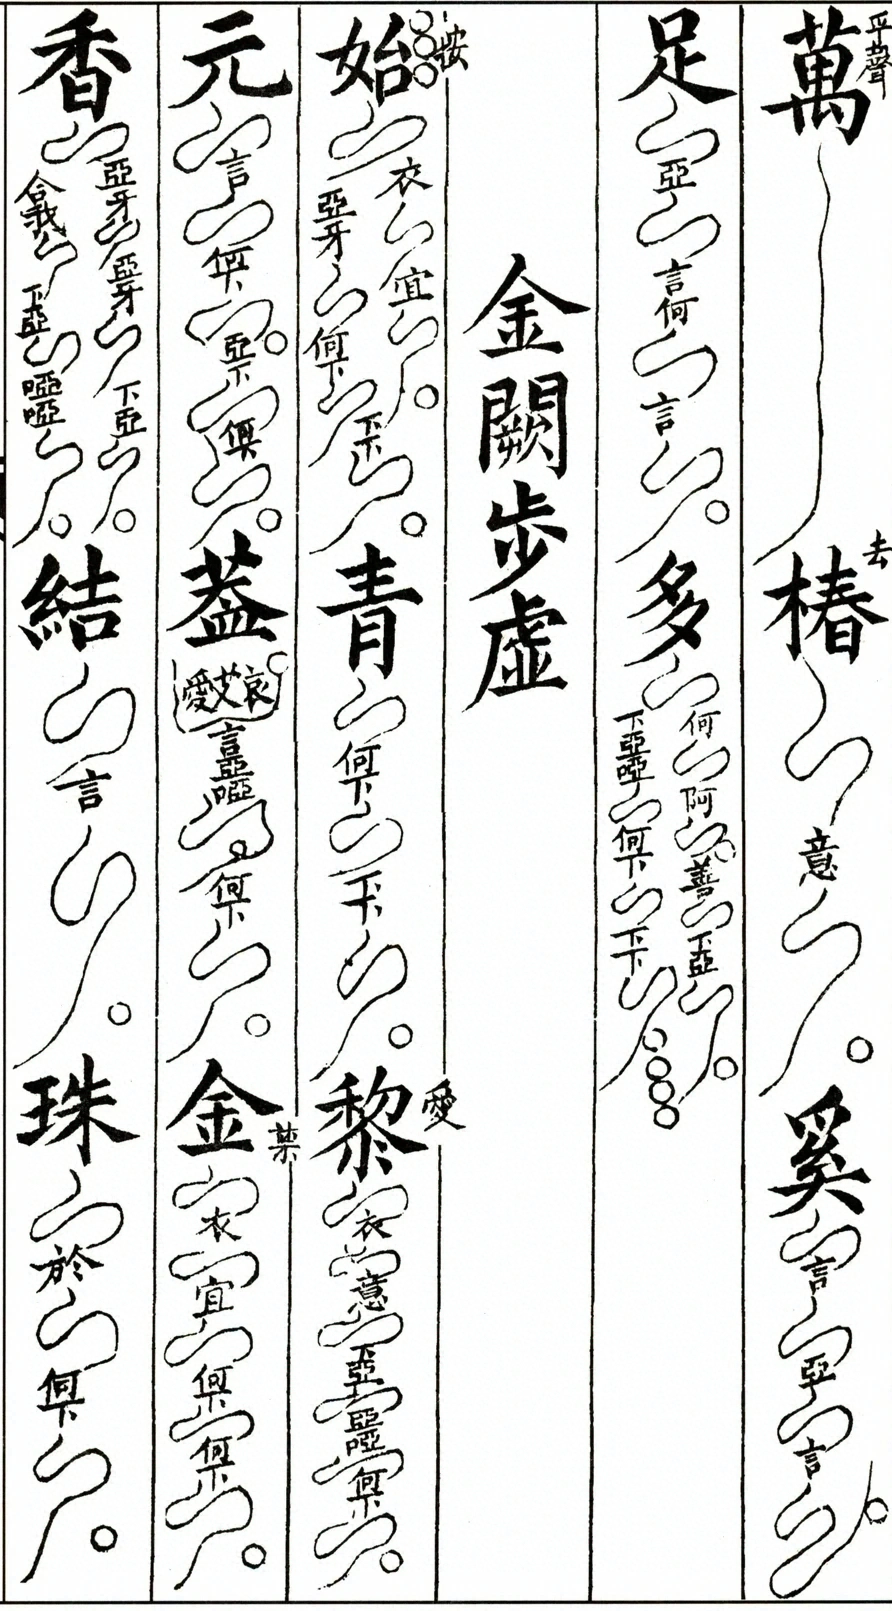 平聲 萬 去 椿 意 奚 言 亞 言
足 亞 言 何 言 多 何 阿 善 下亞 下亞啞 何下 下下
金闕步虛
按 始 衣 宜 亞牙 何下 下下 青 何下 下下 愛 黎 衣 意 下亞 亞啞 何下
元 言 何下 亞下 何下 蓋 哀艾愛 言亞啞 何下 金 衣 宜 何下 何下
香 亞牙 亞牙 下亞 下亞 啞啞 結 言 珠 於 何下